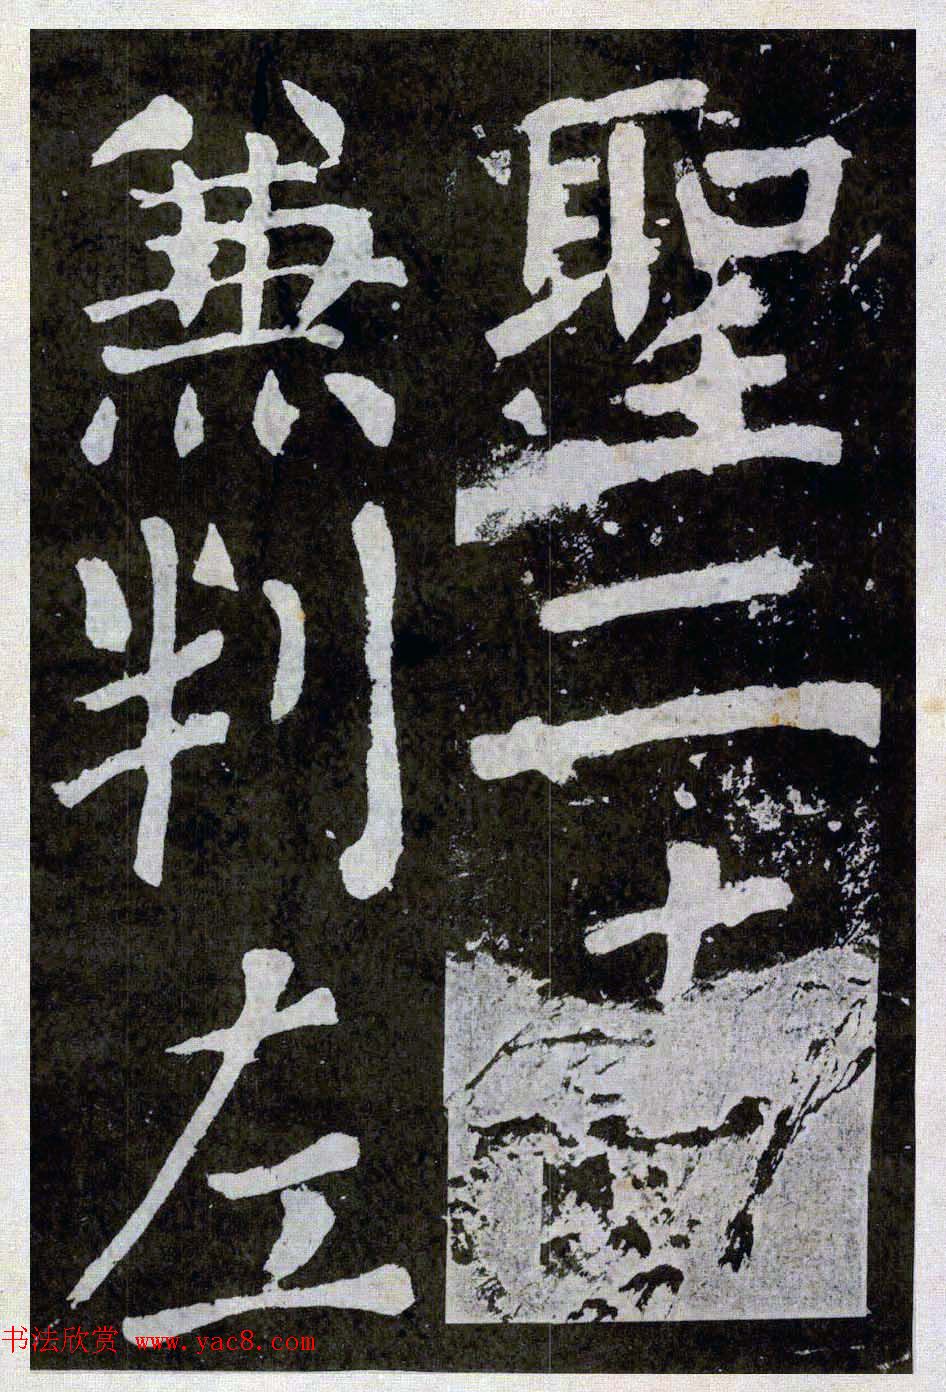 聖二十
兼判左
书法欣赏 www.yac8.com